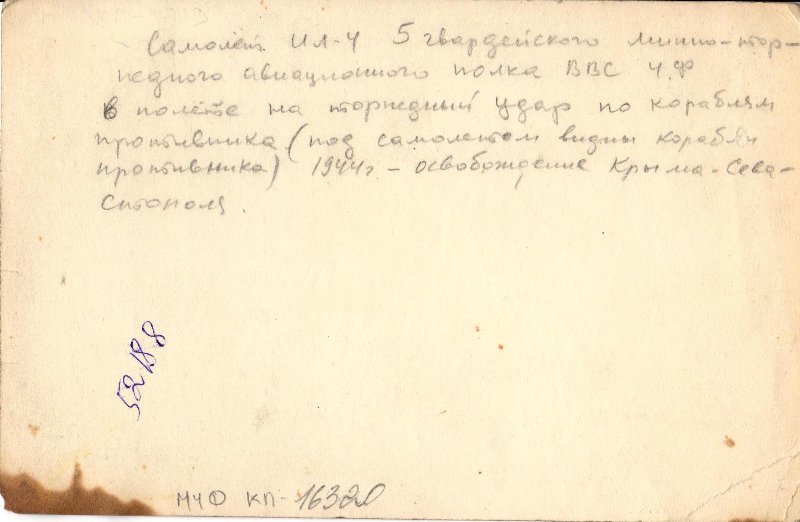 Самолет ИЛ-4 5 гвардейского минно-тор-
педного авиационного полка ВВС ч.ф
в полете на торпедный удар по кораблям
противника (под самолетом видны корабли
противника) 1944г – освобождение Крыма-Сева-
стополя.
52188
МЧФ КП-16320